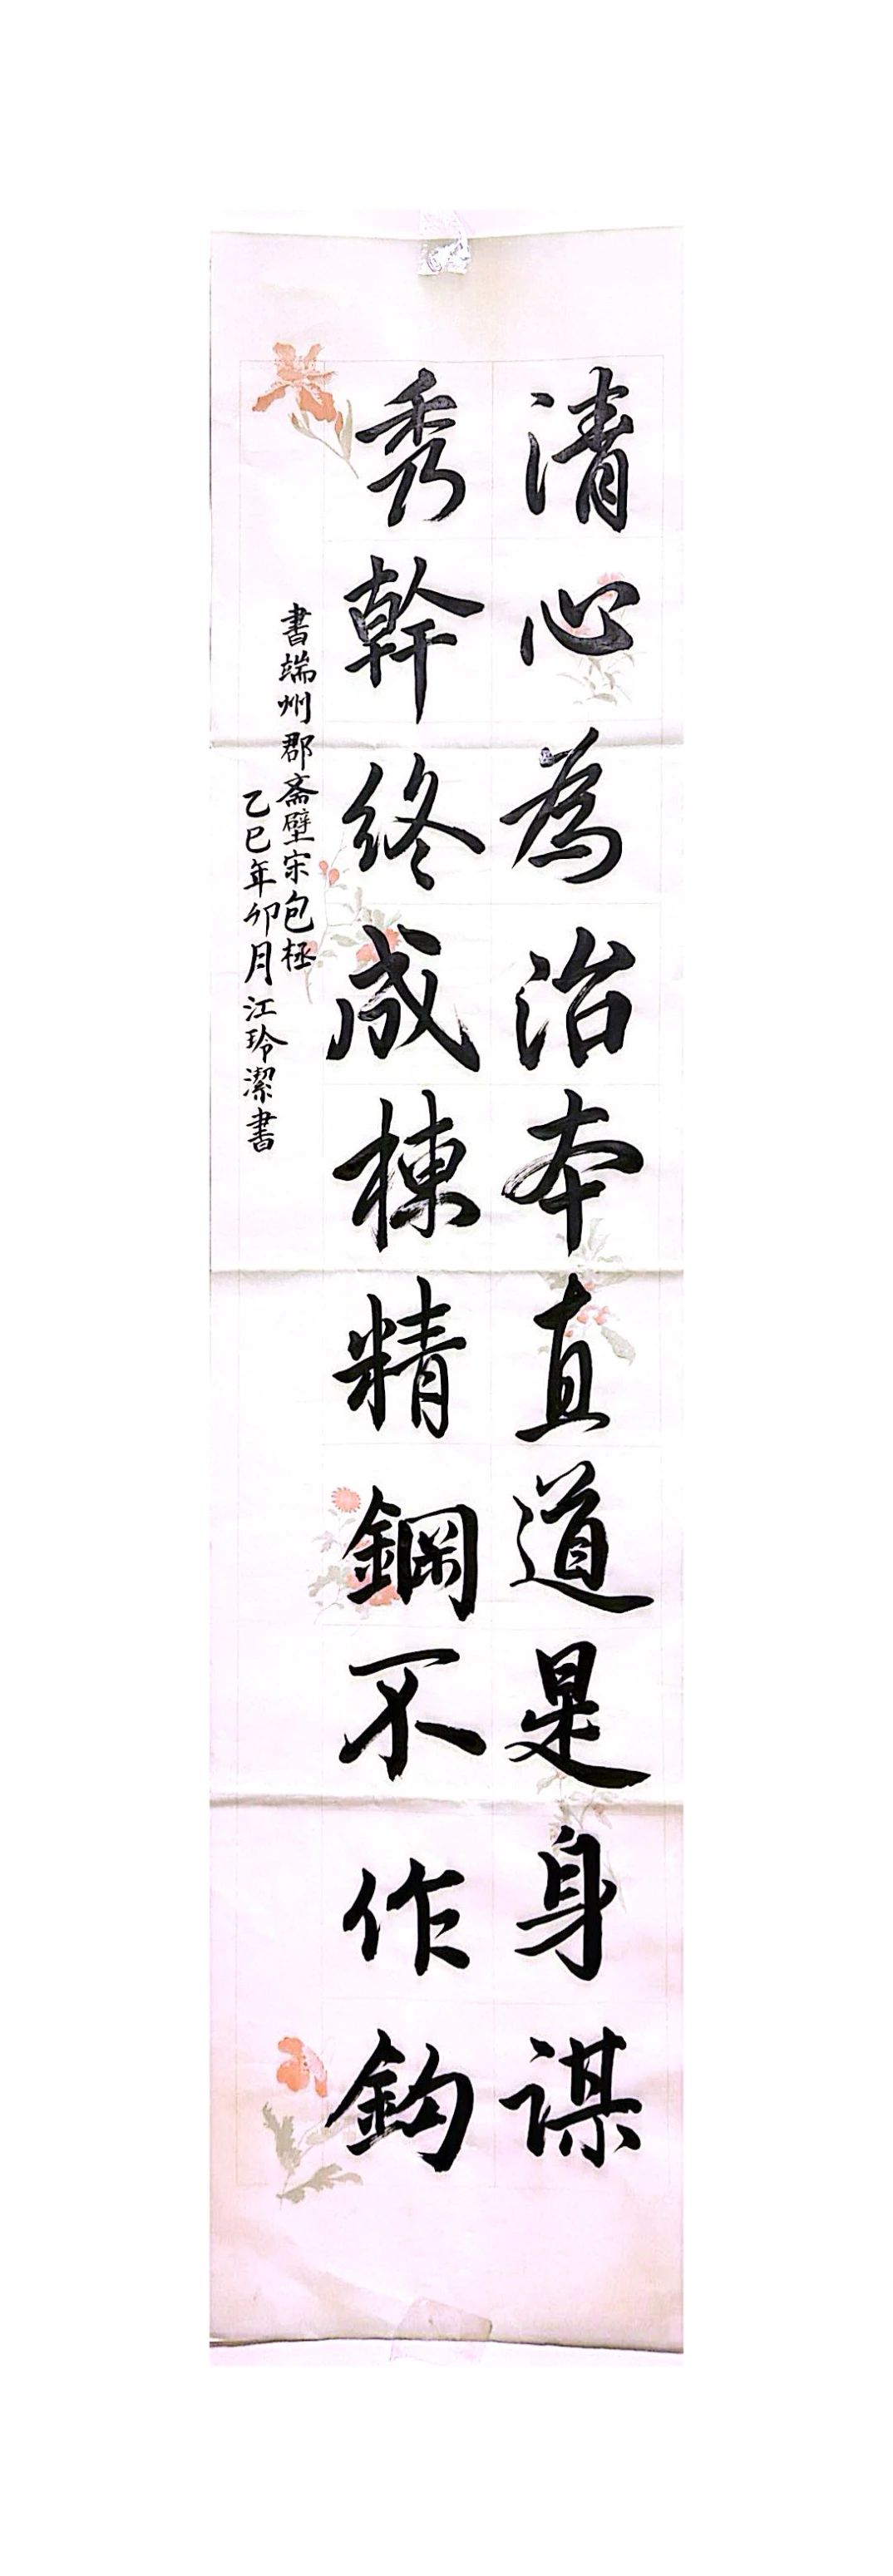 清心為治本直道是身謀
秀幹終成棟精鋼不作鈎
書端州郡斋壁宋包拯
乙巳年卯月江玲潔書